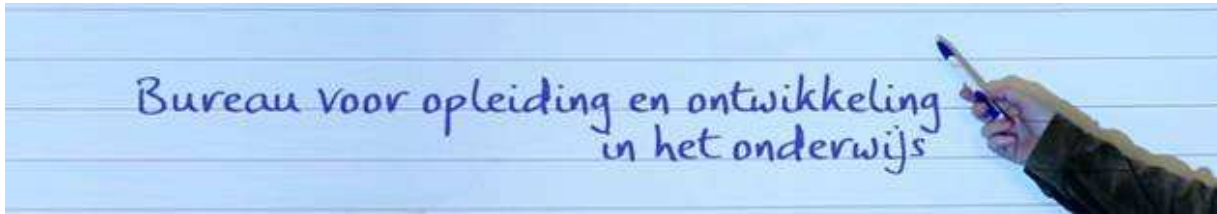 Bureau voor opleiding en ontwikkeling
in het onderwijs